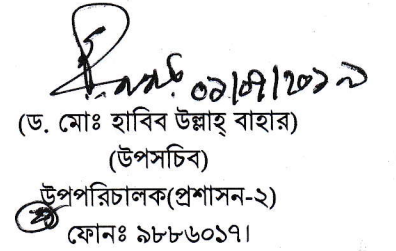 (ড. মোঃ হাবিব উল্লাহ্ বাহার)
(উপসচিব)
উপপরিচালক(প্রশাসন-২)
ফোনঃ ৯৮৮৬০১৭।